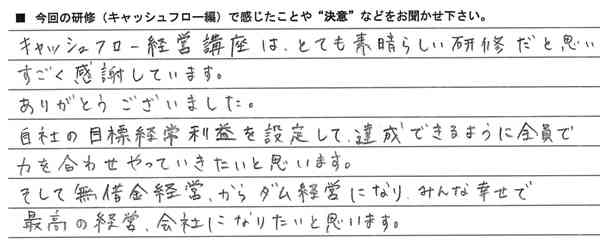 ■ 今回の研修（キャッシュフロー編）で感じたことや“決意”などをお聞かせ下さい。
キャッシュフロー経営講座は、とても素晴らしい研修だと思い
すごく感謝しています。
ありがとうございました。
自社の目標経常利益を設定して、達成できるように全員で
力を合わせやっていきたいと思います。
そして無借金経営、からダム経営になり、みんな幸せで
最高の経営、会社になりたいと思います。